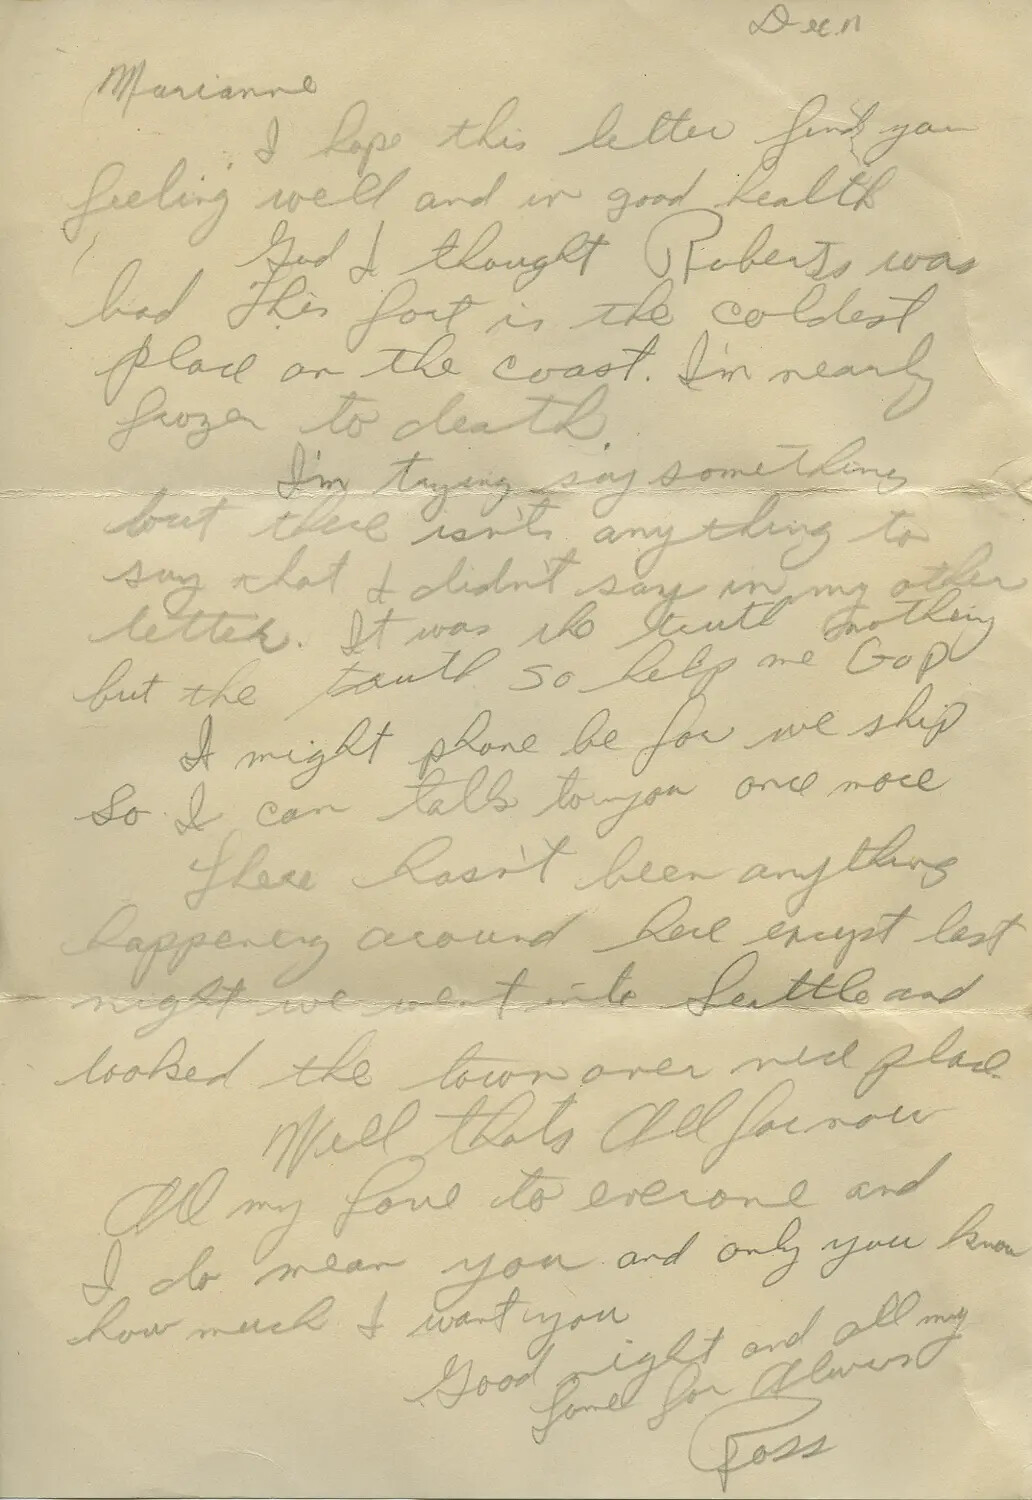 Dec 11
Marianne
I hope this letter finds you
feeling well and in good health
God I thought Roberts was
bad This fort is the coldest
place on the coast. I'm nearly
frozen to death.
I'm trying say something
but there isn't anything to
say that I didn't say in my other
letter. It was the truth nothing
but the truth so help me GOD
I might phone be for we ship
so I can talk to you once more
There hasn't been anything
happening around here except last
night we went into Seattle and
looked the town over nice place
Well thats All for now
All my love to everone and
I do mean you and only you know
how much I want you
Good night and all my
love for Always
Ross